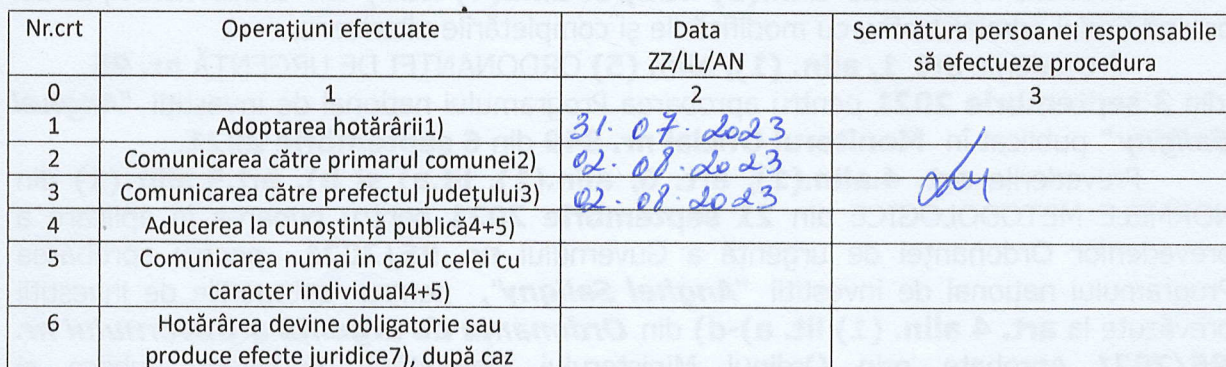 Nr.crt Operațiuni efectuate Data Semnătura persoanei responsabile
ZZ/LL/AN să efectueze procedura
0 1 2 3
1 Adoptarea hotărârii1) 31. 07. 2023
2 Comunicarea către primarul comunei2) 02. 08. 2023
3 Comunicarea către prefectul județului3) 02. 08. 2023
4 Aducerea la cunoștință publică4+5)
5 Comunicarea numai in cazul celei cu
caracter individual4+5)
6 Hotărârea devine obligatorie sau
produce efecte juridice7), după caz